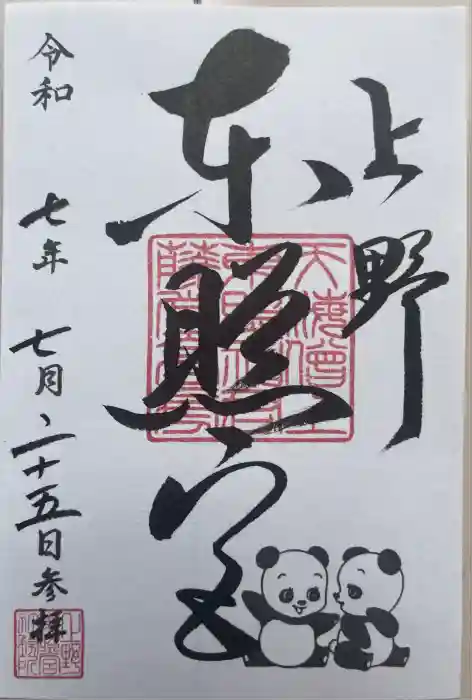 上野
东照宮
令和七年七月二十五日参拝